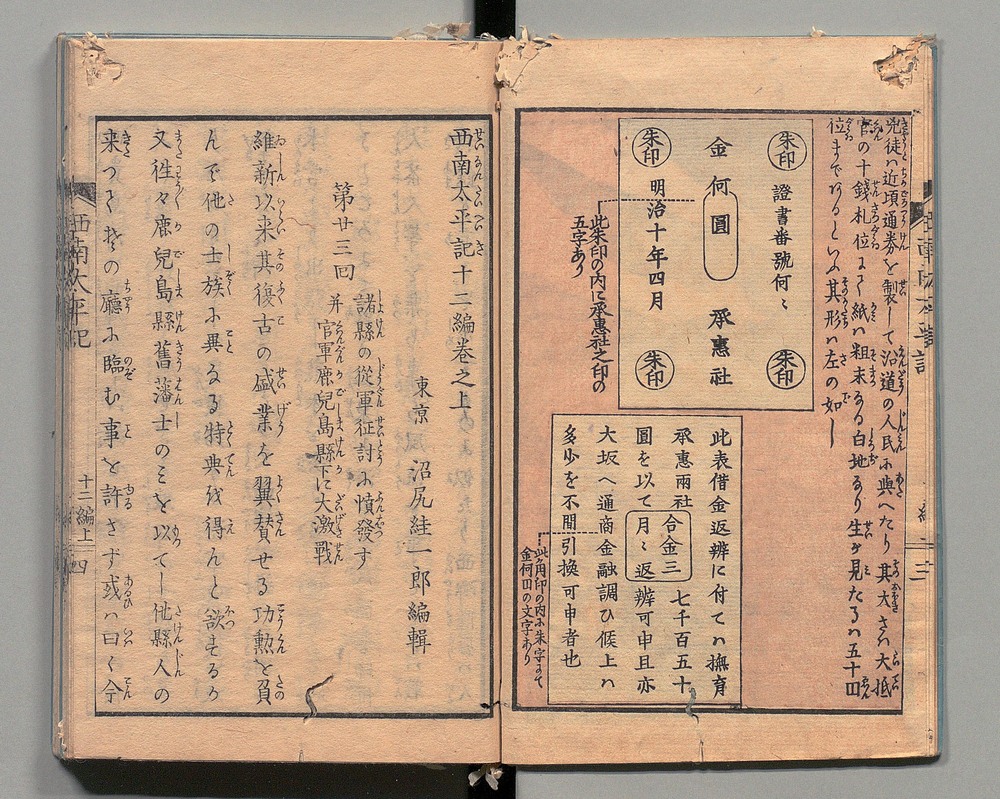 兇徒ハ近頃通券を製して沿道の人民に與へたり其大さハ大抵
官の十錢札位にて紙ハ粗末なる白地なり生が見たるハ五十円
位までなるといふ其形ハ左の如し
朱印
證書番號何〻
朱印
金何圓 承惠社
朱印
明治十年四月
朱印
此朱印の内に承惠社之印の
五字あり
此表借金返辨に付てハ撫育
承惠兩社合金三七千百五十
圓を以て月〻返辨可申且亦
大坂へ通商金融調ひ候上ハ
多少を不間引換可申者也
此角印の内に朱字にて
金何円の文字あり
西南太平記十二編卷之上
東京 沼尻絓一郎編輯
第廿三回
諸縣の從軍征討に憤發す
并官軍鹿兒島縣下に大激戰
維新以来其復古の盛業を翼賛せる功勲を負
んで他の士族に異なる特典を得んと欲するか
又徃々鹿兒島縣舊藩士のミを以てし他縣人の
来つて其の廳に臨む事を許さず或ハ曰く令
西南太平記
十二編上
四